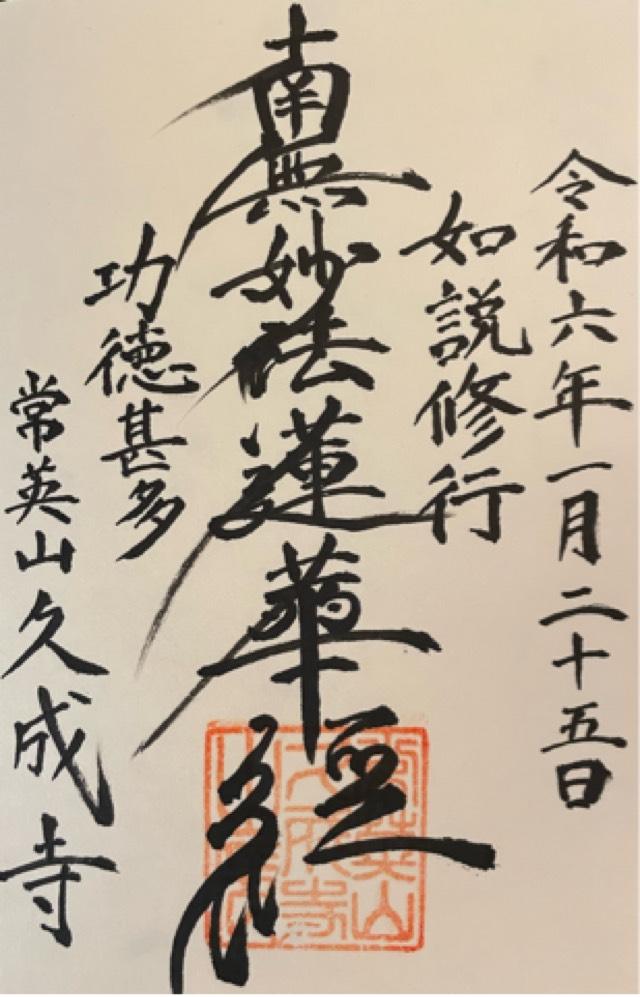 令和六年一月二十五日
如説修行
南無妙法蓮華経
功徳甚多
常英山久成寺